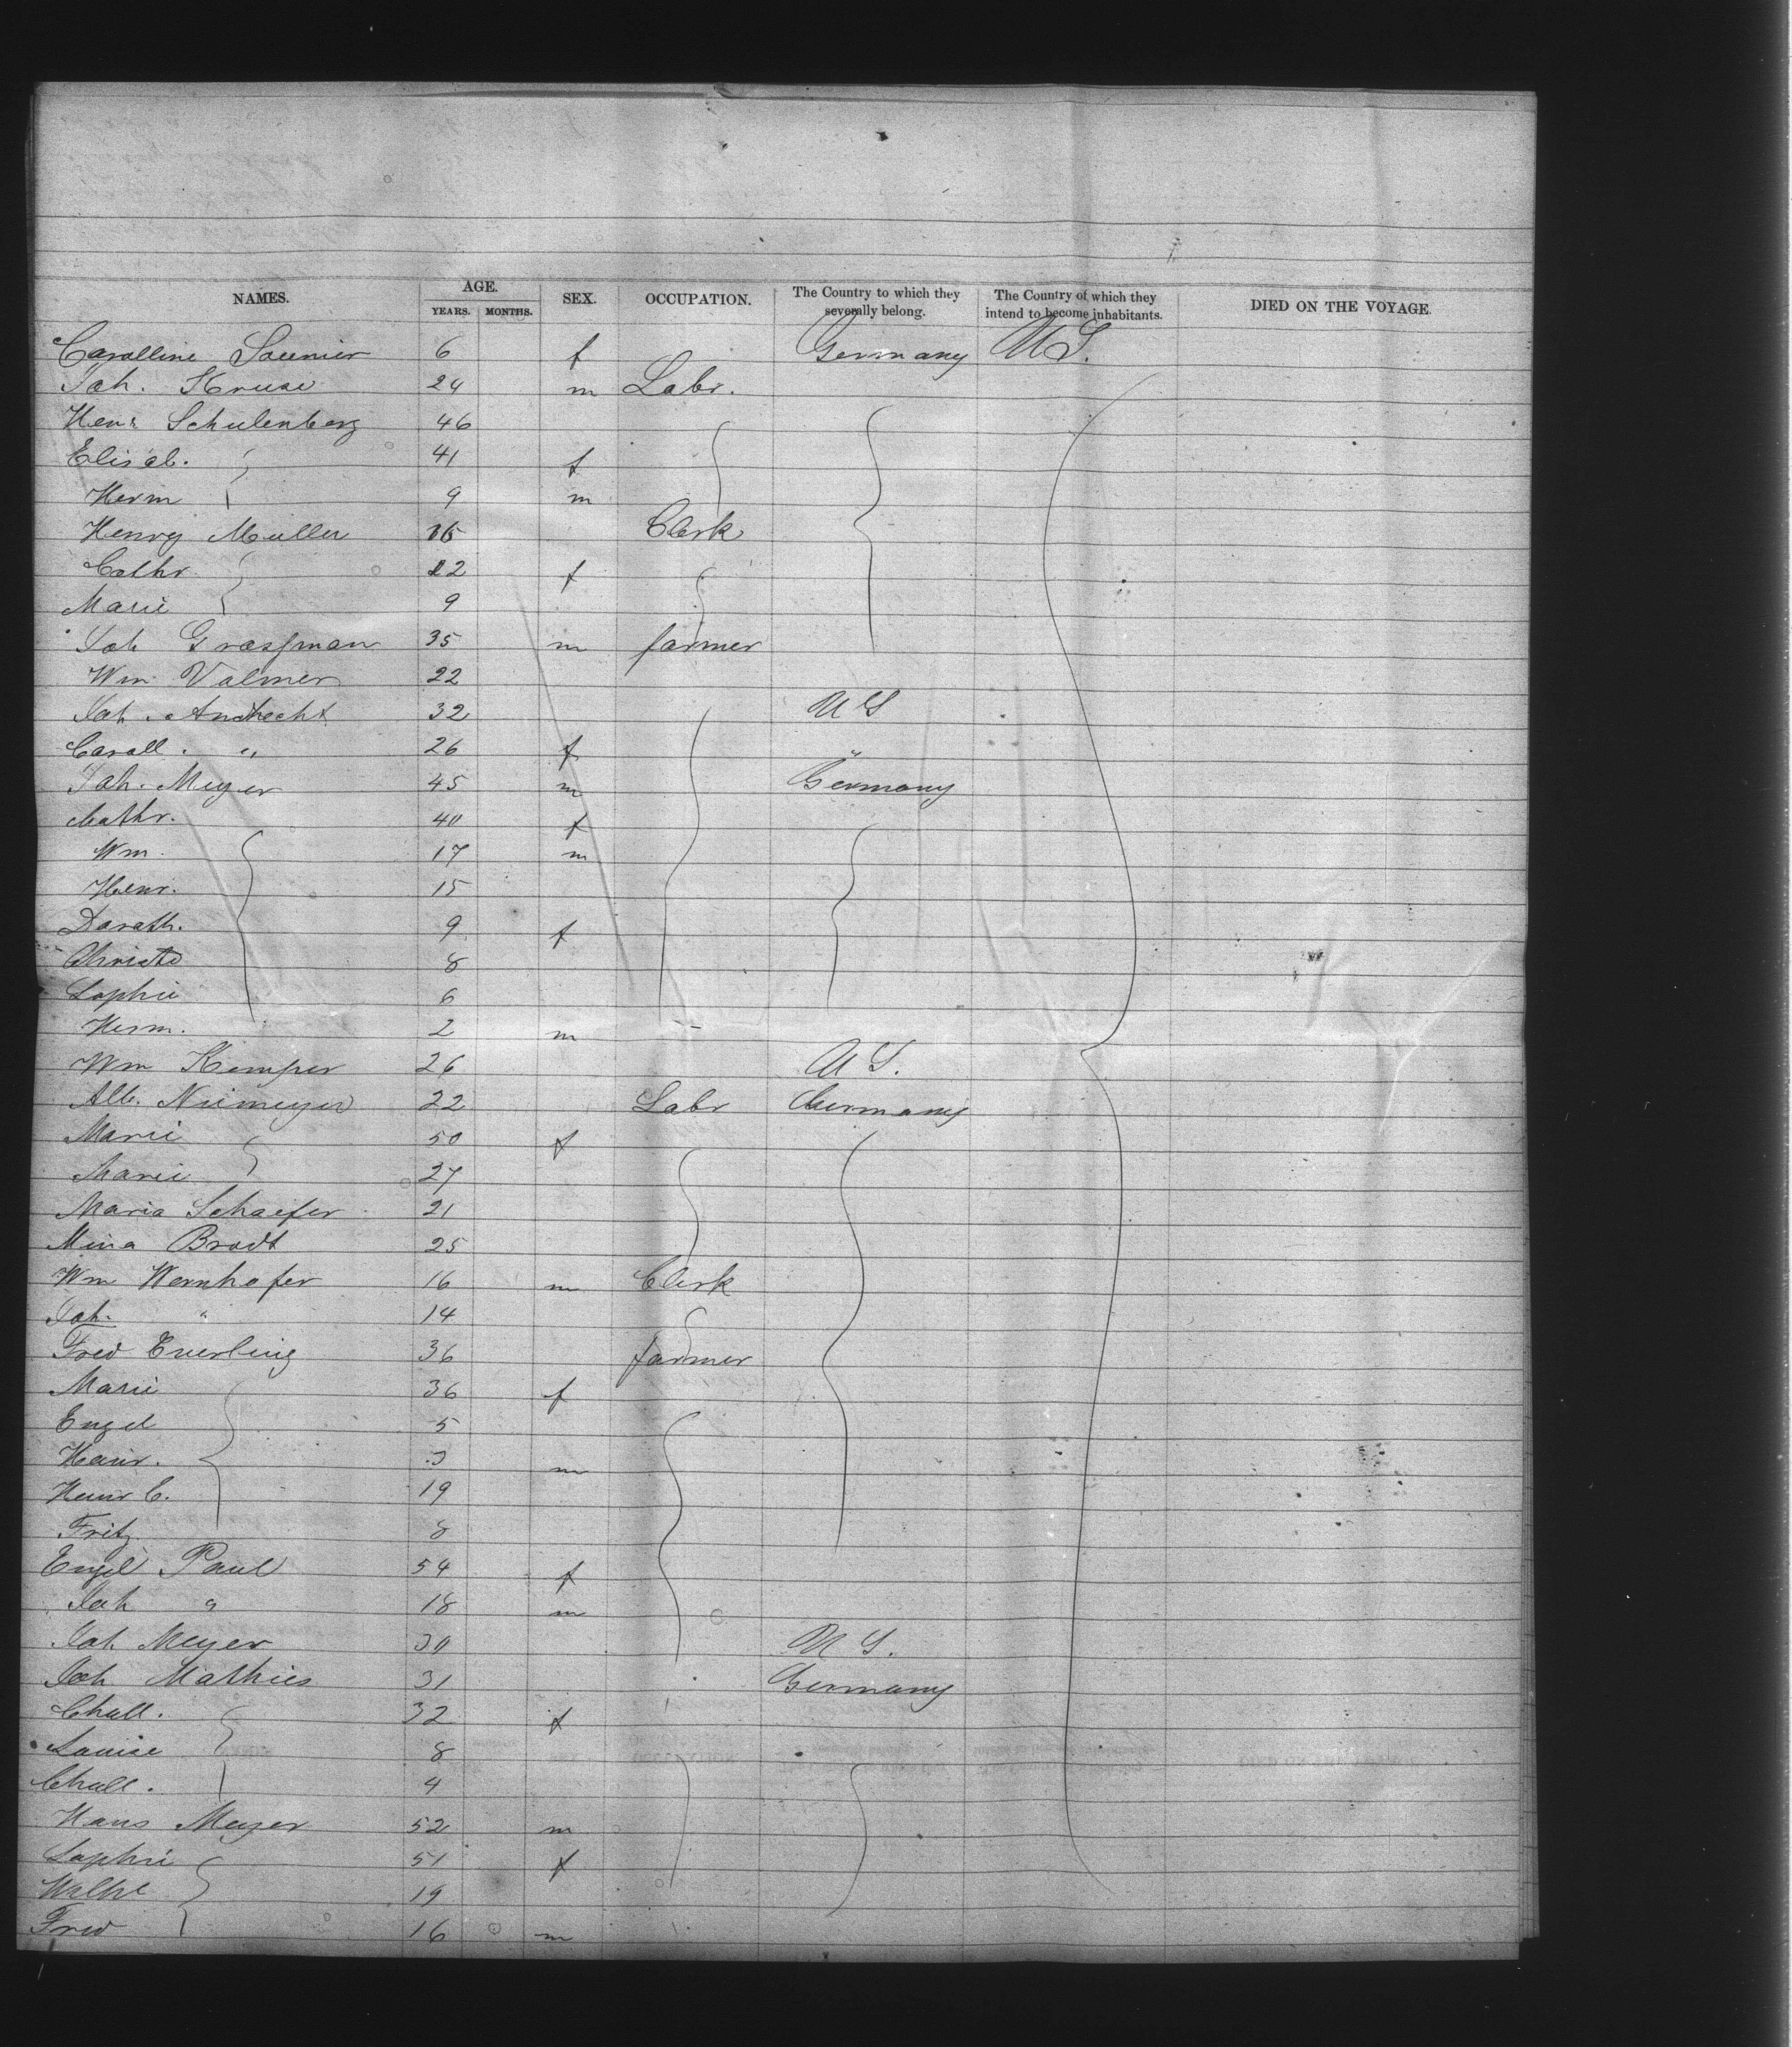 NAMES. AGE. SEX. OCCUPATION. The Country to which they severally belong. The Country of which they intend to become inhabitants. DIED ON THE VOYAGE.
YEARS. MONTHS.
Carolline Saunier 6 f Germany U S.
Joh. Kruse 24 m Labr.
Henr Schulenberg 46
Elisab. 41 f
Herm 9 m
Henry Muller 16 Clerk
Cathr. 12 f
Marie 9
Joh Grassman 35 m farmer
Wm Valmer 22
Joh. Andhecht 32 U S
Caroll. " 26 f "
Joh. Meyer 45 m Germany
Cathr. 40 f
Wm. 17 m
Henr. 15
Dorath. 9 f
Christo 8
Sophie 6
Herm. 2 m
Wm Kemper 26 U S.
Alb. Niemeyer 22 Labr Germany
Marie 50 f
Marie 27
Maria Schaefer 21
Mina Brodt 25
Wm Wernhofer 16 m Clerk
Joh. " 14
Fred Everling 36 farmer
Marie 36 f
Engel 5
Heinr. 3 m
Heinr C. 19
Fritz 8
Engel Paul 54 f
Joh " 18 m
Joh Meyer 30 U S.
Joh Mathies 31 Germany
Chall. 32 f
Louise 8
Chall. 4
Hans Meyer 52 m
Sophie 51 f
Wilhe 19
Fred 16 m